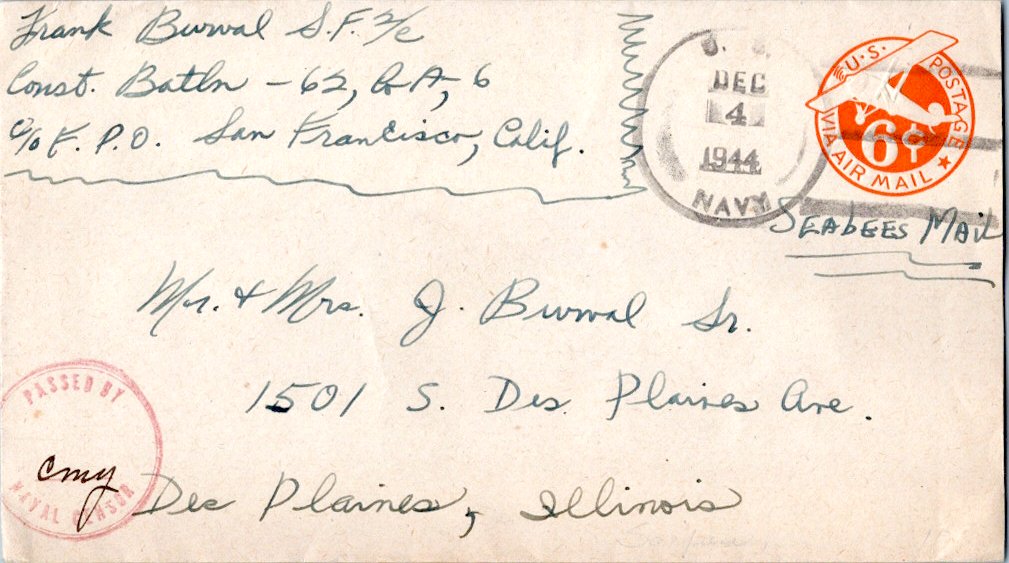 Frank Burval S.F. 2/c
Const. Batln - 62, Co A, 6
c/o F. P. O. San Francisco, Calif.
U. S.
DEC
4
1944
NAVY
U.S. POSTAGE
6¢
VIA AIR MAIL
SEABEES MAIL
Mr. & Mrs. J. Burval Sr.
1501 S. Des Plaines Ave.
Des Plaines, Illinois
PASSED BY
cmy
NAVAL CENSOR